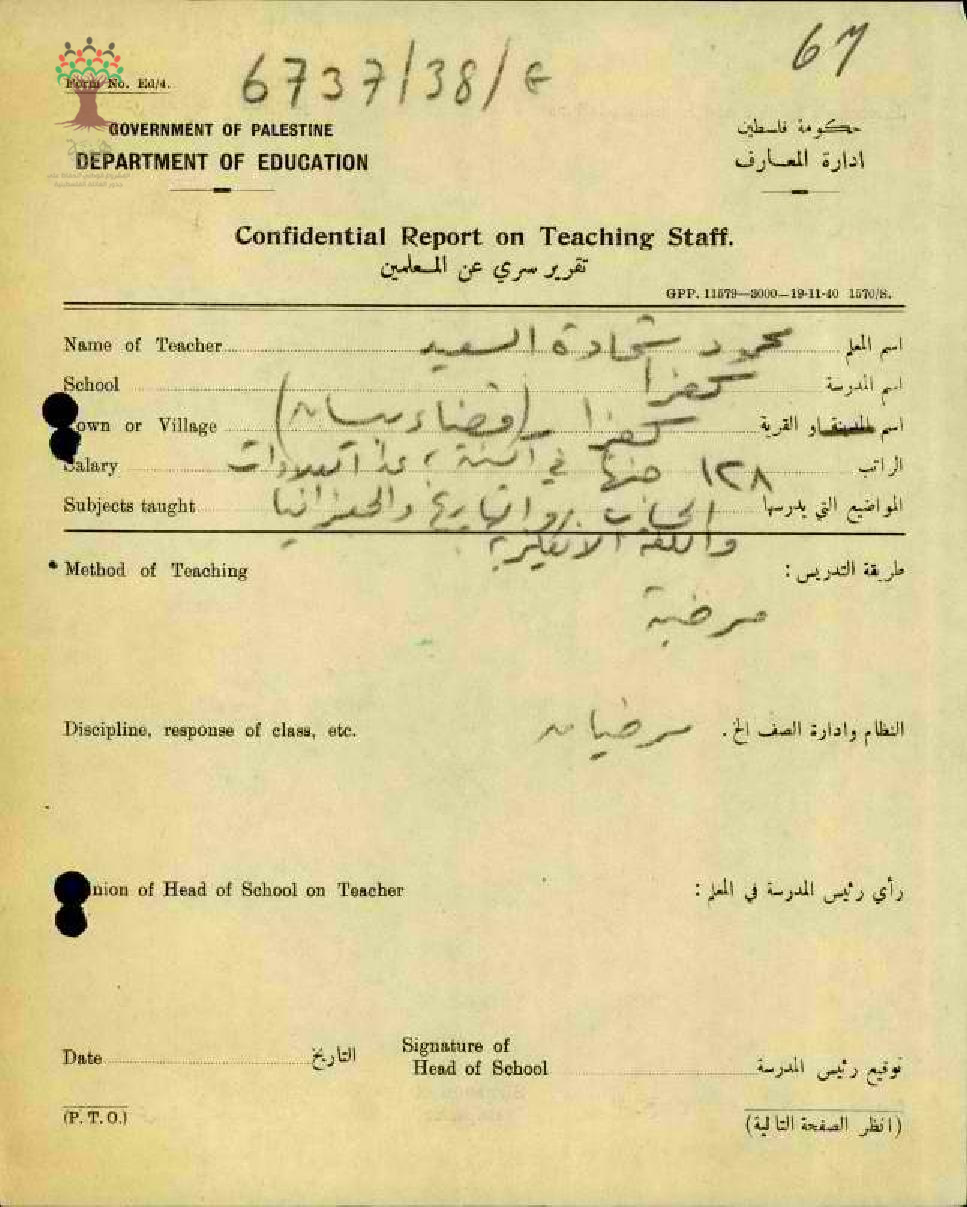 67
6737/38/E
Form No. Ed/4.
GOVERNMENT OF PALESTINE
حكومة فلسطين
DEPARTMENT OF EDUCATION
ادارة المعارف
Confidential Report on Teaching Staff.
تقرير سري عن المعلمين
GPP. 11579—3000—19-11-40 1570/S.
Name of Teacher محمود شحادة السعيد اسم المعلم
School كفرا اسم المدرسة
own or Village كفرا (قضاء بيسان) اسم المدينة او القرية
Salary ١٢٨ جنيها في السنة ، عدا العلاوات الراتب
Subjects taught الحساب والتاريخ والجغرافيا المواضيع التي يدرسها
واللغة الانكليزية
* Method of Teaching طريقة التدريس :
مرضية
Discipline, response of class, etc. مرضيان النظام وادارة الصف الخ.
nion of Head of School on Teacher رأي رئيس المدرسة في المعلم :
Date التاريخ Signature of
Head of School توقيع رئيس المدرسة
(P. T. O.) (انظر الصفحة التالية)